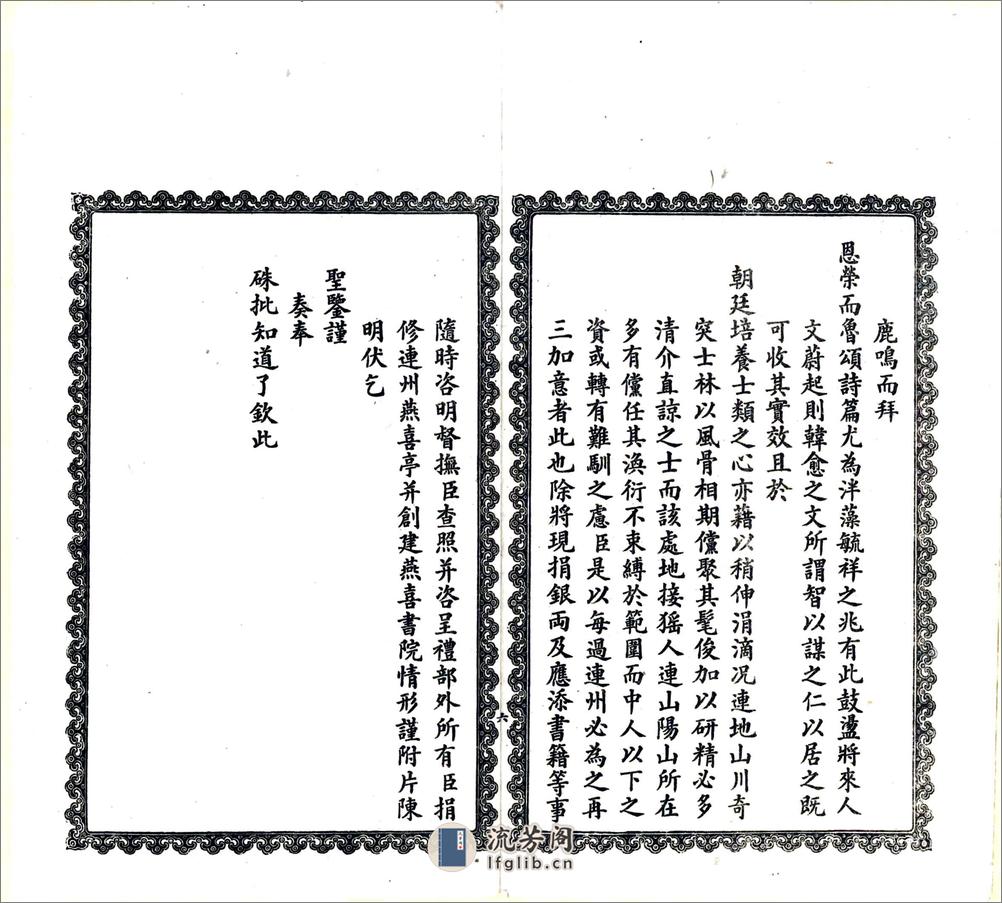 鹿鳴而拜
恩榮而魯頌詩篇尤為泮藻毓祥之兆有此鼓盪將來人
文蔚起則韓愈之文所謂智以謀之仁以居之既
可收其實效且於
朝廷培養士類之心亦藉以稍伸涓滴况連地山川奇
突士林以風骨相期儻聚其髦俊加以研精必多
清介直諒之士而該處地接猺人連山陽山所在
多有儻任其渙衍不束縛於範圍而中人以下之
資或轉有難馴之慮臣是以每過連州必為之再
三加意者此也除將現捐銀両及應添書籍等事
六
隨時咨明督撫臣查照并咨呈禮部外所有臣捐
修連州燕喜亭并創建燕喜書院情形謹附片陳
明伏乞
聖鑒謹
奏奉
硃批知道了欽此
流芳阁
lfglib.cn